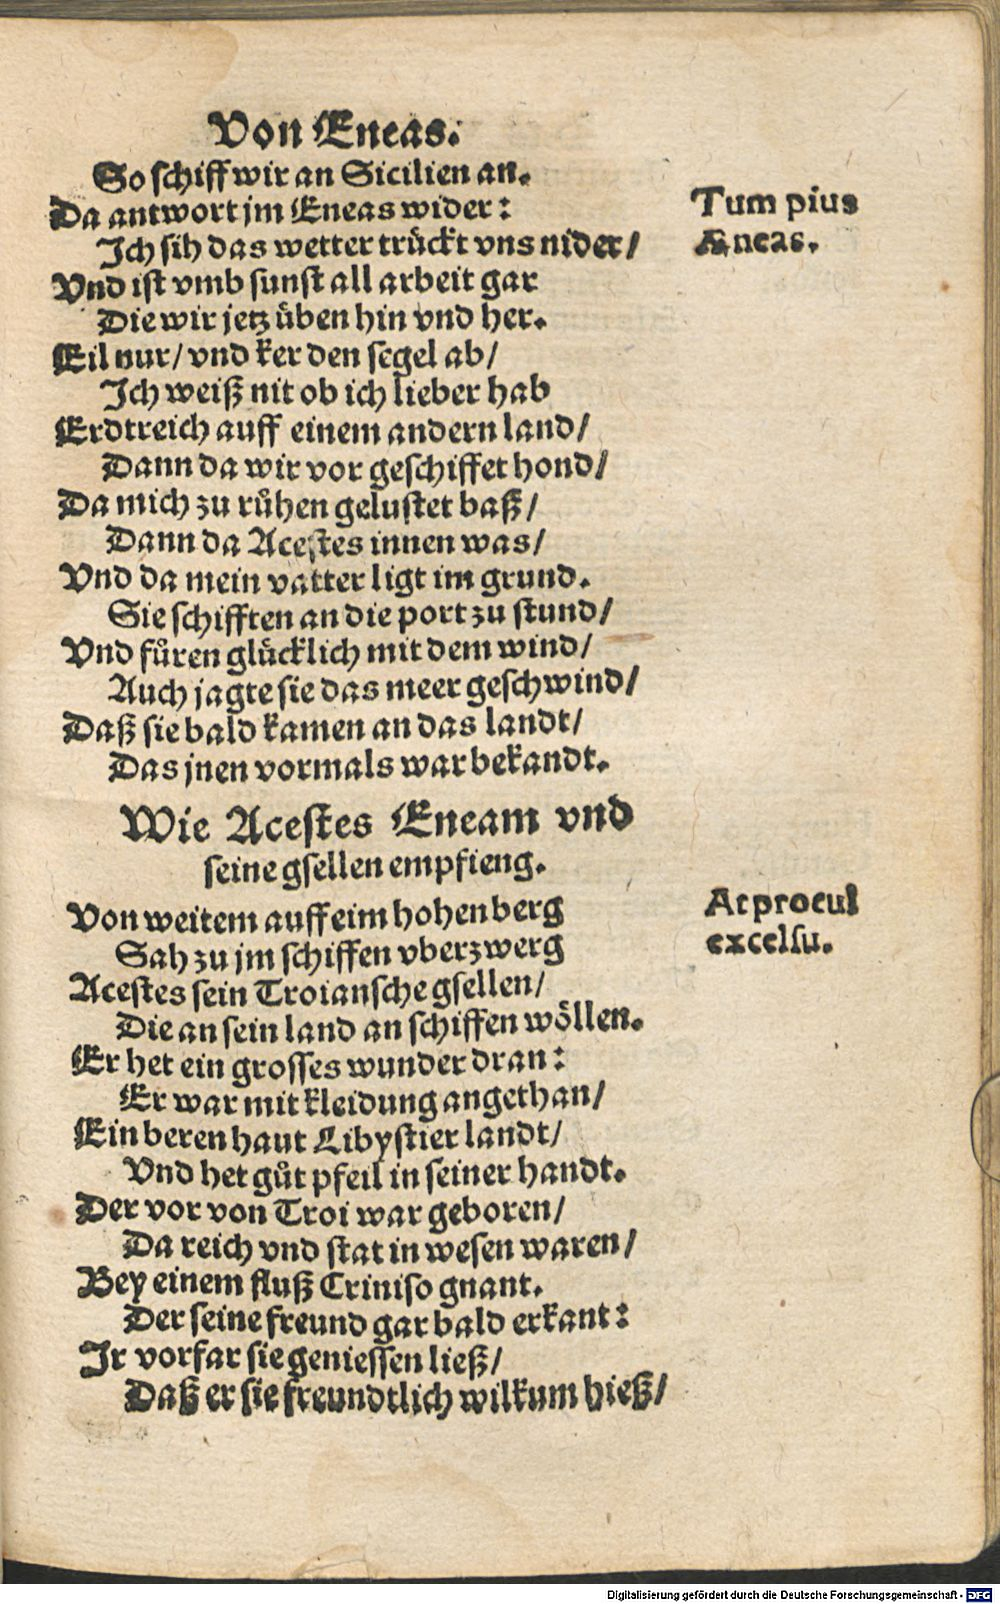 Von Eneas.
So schiff wir an Sicilien an.
Da antwort jm Eneas wider:
Tum pius
Ich sih das wetter trückt vns nider/
Æneas.
Vnd ist vmb sunst all arbeit gar
Die wir jetz üben hin vnd her.
Eil nur/ vnd ker den segel ab/
Ich weiß nit ob ich lieber hab
Erdtreich auff einem andern land/
Dann da wir vor geschiffet hond/
Da mich zu růhen gelustet baß/
Dann da Acestes innen was/
Vnd da mein vatter ligt im grund.
Sie schifften an die port zu stund/
Vnd fůren glücklich mit dem wind/
Auch jagte sie das meer geschwind/
Daß sie bald kamen an das landt/
Das jnen vormals war bekandt.
Wie Acestes Eneam vnd
seine gsellen empfieng.
Von weitem auff eim hohen berg
At procul
Sah zu jm schiffen vberzwerg
excelsu.
Acestes sein Troiansche gsellen/
Die an sein land an schiffen wöllen.
Er het ein grosses wunder dran:
Er war mit kleidung angethan/
Ein beren haut Libystier landt/
Vnd het gůt pfeil in seiner handt.
Der vor von Troi war geboren/
Da reich vnd stat in wesen waren/
Bey einem fluß Criniso gnant.
Der seine freund gar bald erkant:
Ir vorfar sie geniessen ließ/
Daß er sie freundtlich wilkum hieß/
Digitalisierung gefördert durch die Deutsche Forschungsgemeinschaft - DFG